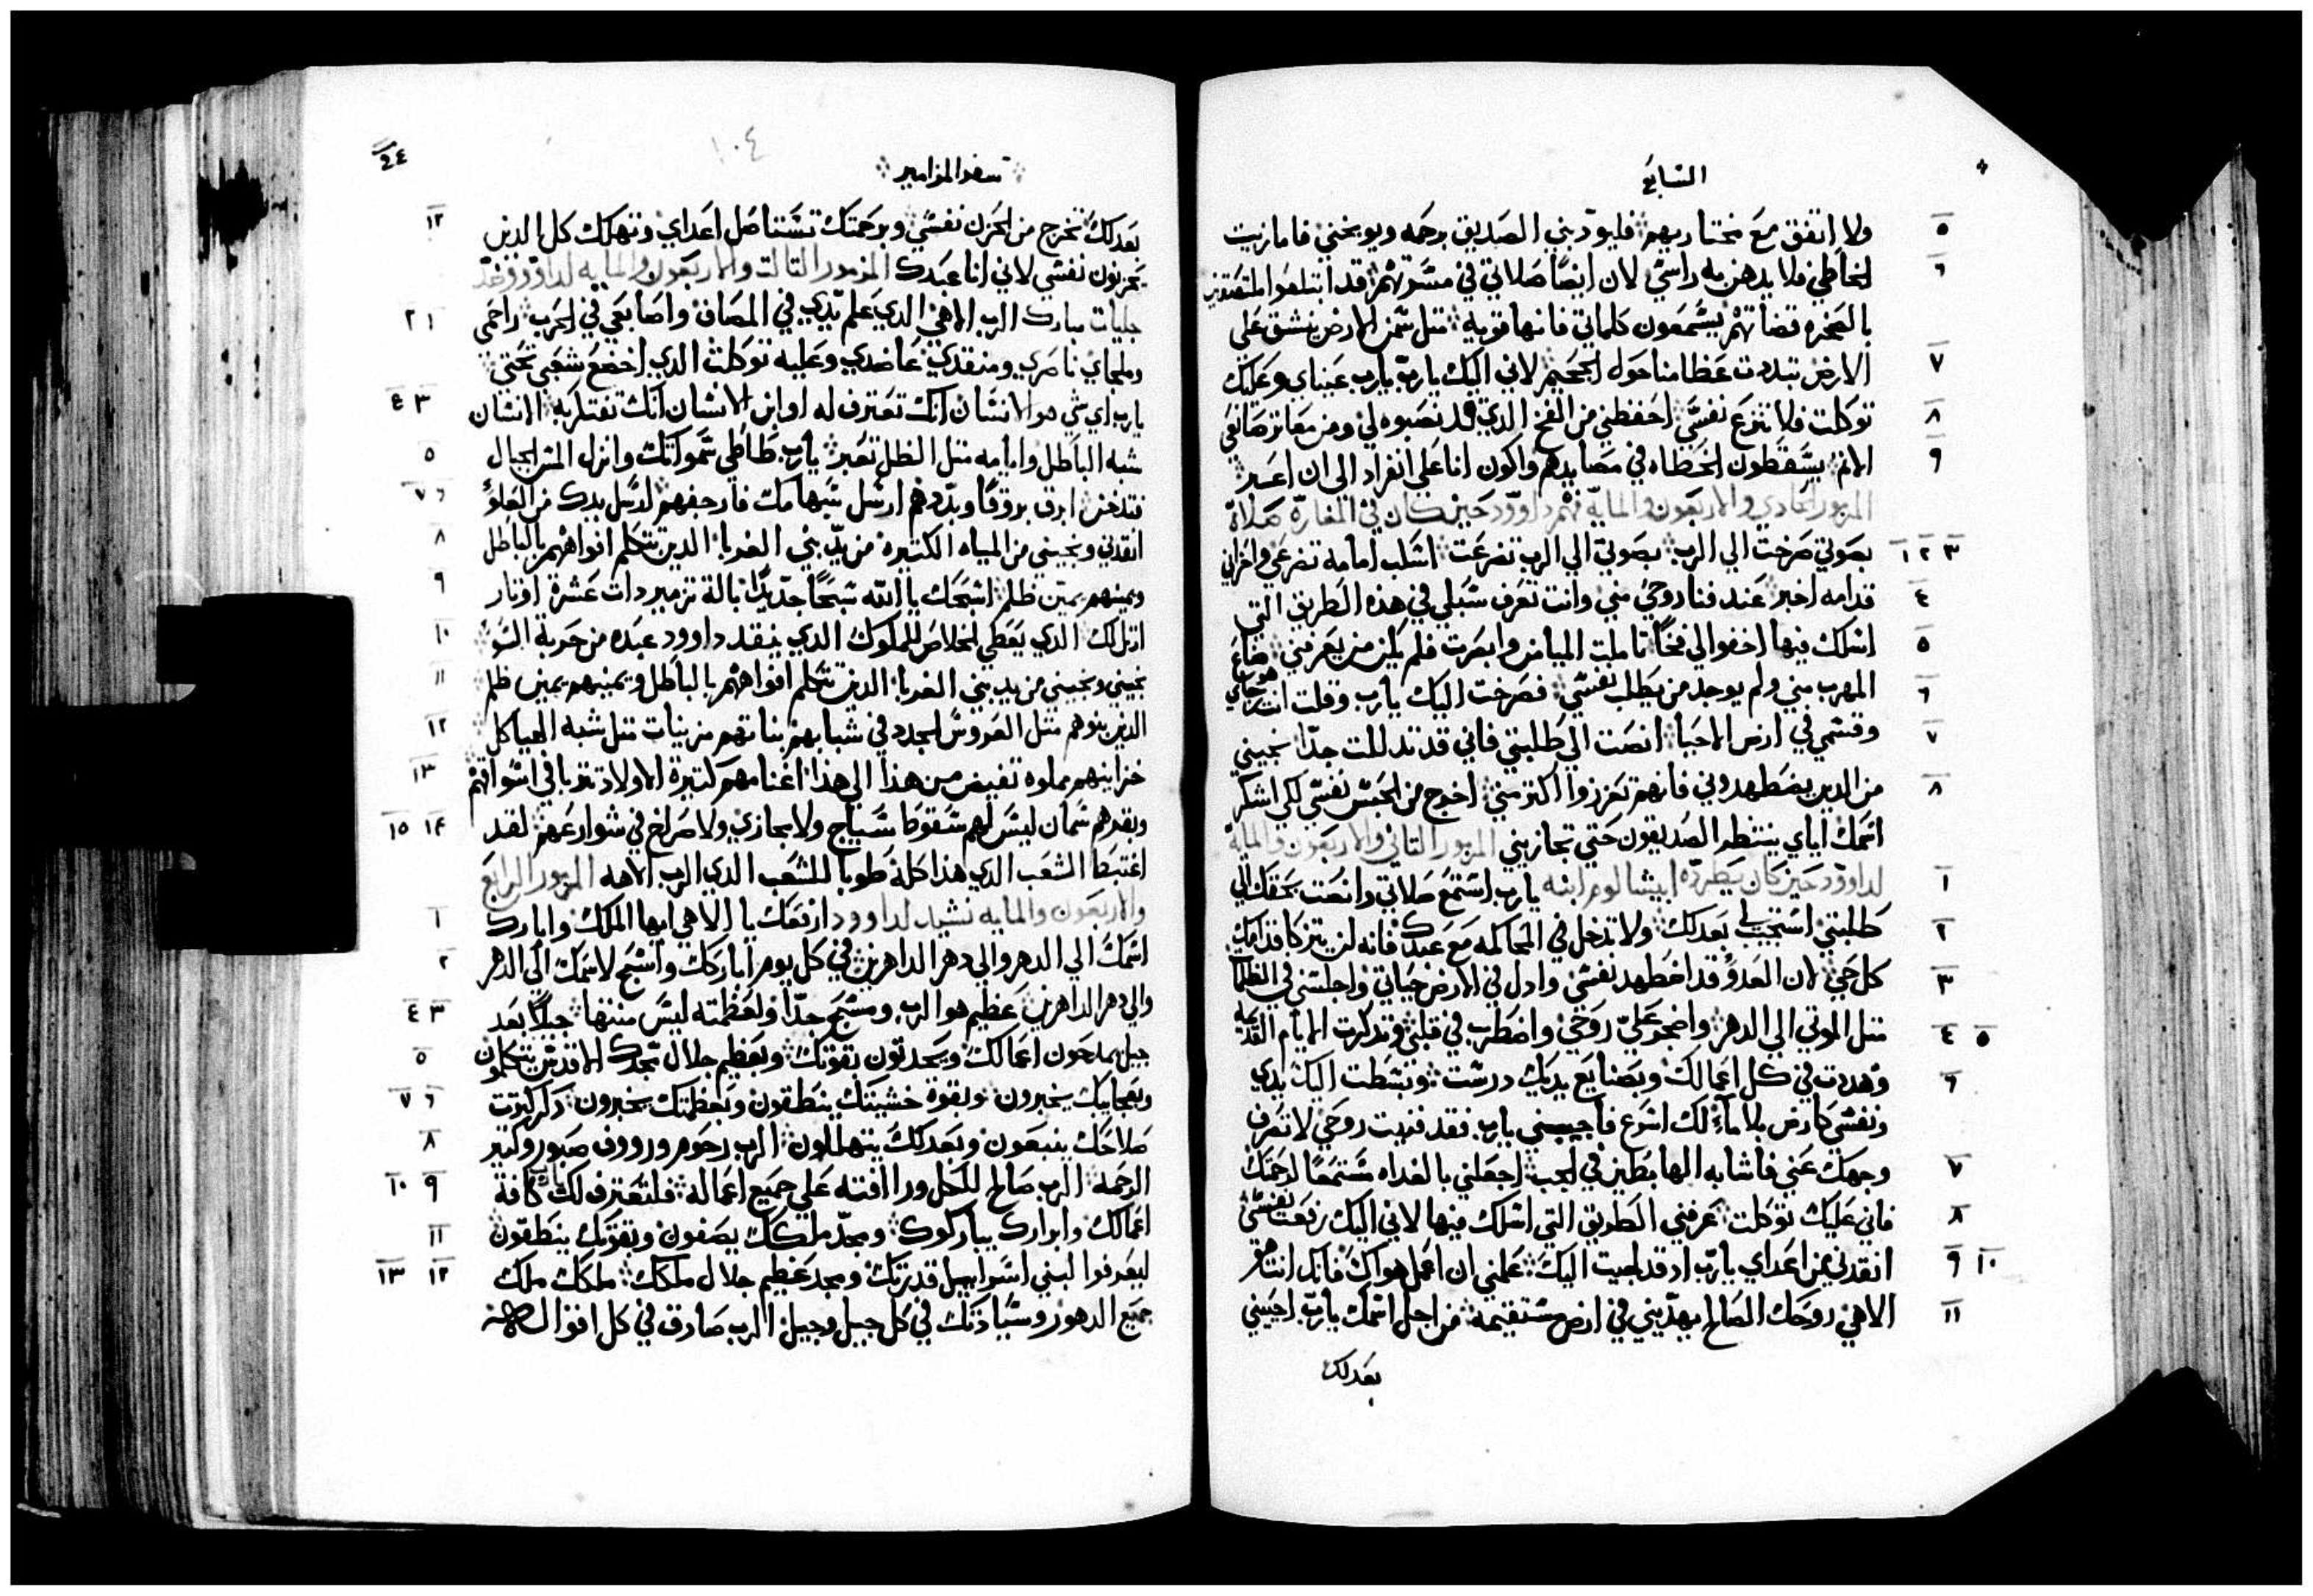 السابع
ولا اتفق مع مختاريهم فليودبني الصديق برحمه ويوبخني فاما زيت
الخاطي فلا يدهن به راسي لان ايضا صلاتي في مسرتهم قد ابتلعوا الملتصقين
بالصخره قضاتهم يسمعون كلماتي فانها قويه متل شمن الارض ينشق علي
الارض تبددت عظامنا حول الجحيم لاني اليك يارب يارب عيناي وعليك
توكلت فلا تنزع نفسي احفظني من الفخ الدي قد نصبوه لي ومن معاتر صانعي
الاتم يسقطون الخطاه في مصايدهم واكون انا علي انفراد الي ان اعبر
المزمور الحادي والاربعون والمايه فهم داوود حين كان في المغارة صلاة
بصوتي صرخت الي الرب بصوتي الي الرب تضرعت اسكب امامه تضرعي واحزاني
قدامه اخبر عند فنا روحي مني وانت تعرف سبلي في هذه الطريق التي
اسلك فيها اخفوا لي فخا تاملت الميامن وابصرت فلم يكن من يعرفني ضاع
المهرب مني ولم يوجد من يطلب نفسي فصرخت اليك يارب وقلت انت هو رجاي
وقسمي في ارض الاحيا انصت الي طلبتي فاني قد تدللت جدا نجيني
من الدين يضطهدوني فانهم تعززوا اكتر مني اخرج من الحبس نفسي لكي اشكر
اسمك اياي ينتظر الصديقون حتي تجازيني المزمور التاني والاربعون والماية
لداوود حين كان يطرده ابيشالوم ابنه يارب استمع صلاتي وانصت بحقك الي
طلبتي استجيب لي بعدلك ولا تدخل في المحاكمه مع عبدك فانه لن يتزكا قدامك
كل حي لان العدو قد اضطهد نفسي وادل في الارض حياتي واجلسني في الظلما
متل الموتي الي الدهر واضجر علي روحي واضطرب في قلبي وتدكرت الايام القديمه
وهددت في كل اعمالك وبصنايع يديك درست وبسطت اليك يدي
ونفسي كارض بلا ماء لك اسرع فاجيبني يارب فقد فنيت روحي لا تصرف
وجهك عني فاشابه الهابطين في الجب اجعلني بالغداه مستمعا لرحمتك
فاني عليك توكلت عرفني الطريق التي اسلك فيها لاني اليك رفعت نفسي
انقدني من اعداي يارب اد قد لجيت اليك علمني ان اعمل هواك فانك انت هو
الاهي روحك الصالح يهديني في ارض مستقيمه من اجل اسمك يارب احييني
بعدلك
سفر المزامير
١٠٤
بعدلك تخرج من الحزن نفسي وبرحمتك تستاصل اعداي وتهلك كل الدين
يحزنون نفسي لاني انا عبدك المزمور التالت والاربعون والمايه لداوود عند
جليات مبارك الرب الاهي الدي علم يدي في المصاف واصابعي في الحرب راحمي
وملجاي ناصري ومنقدي عاضدي وعليه توكلت الدي اخضع شعبي تحتي
يارب اي شي هو الانسان انك تعترف له او ابن الانسان انك تفتكر به الانسان
شبه الباطل وايامه متل الظل تعبر يارب طاطي سمواتك وانزل المس الجبال
فتدخن ابرق بروقا وبددهم ارسل سهامك فارجفهم ارسل يدك من العلو
انقدني ونجيني من المياه الكتيره من يد بني الغربا الدين تتكلم افواههم بالباطل
ويمينهم يمين ظلم اسبحك يا الله سبحا جديدا بالة تزمير دات عشرة اوتار
ارتل لك الدي يعطي الخلاص للملوك الدي ينقد داوود عبده من حربة السو
نجيني ونجيني من يد بني الغربا الدين تتكلم افواههم بالباطل ويمينهم يمين ظلم
الدين بنوهم متل الغروس الجدد في شبابهم بناتهم مزينات متل شبه الهياكل
خزاينهم مملوه تفيض من هذا الي هذا اغنامهم كتيرة الاولاد تتربا في اسواقهم
وبقرهم سمان ليس لهم سقوط سياج ولا مجازي ولا صراخ في شوارعهم لقد
اغتبط الشعب الدي هذا كله طوبا للشعب الدي الرب الاهه المزمور الرابع
والاربعون والمايه نشيد لداوود ارفعك يا الاهي ايها الملك وابارك
اسمك الي الدهر والي دهر الداهرين في كل يوم اباركك واسبح لاسمك الي الدهر
والي دهر الداهرين عظيم هو الرب ومسبح جدا ولعظمته ليس منتها جيلا بعد
جيل يمدحون اعمالك ويحدتون بقوتك وبعظيم جلال مجدك الاقدس يتكلمون
وبعجايبك يخبرون وبقوة خشيتك ينطقون وبعظمتك يخبرون دكر كترت
صلاحك ينبعون وبعدلك يتهللون الرب رحوم وروف صبور وكتير
الرحمه الرب صالح للكل ورافته علي جميع اعماله فلتعترف لك يارب كافة
اعمالك وابرارك يباركوك ومجد ملكك يصفون وبقوتك ينطقون
ليعرفوا لبني اسراييل قدرتك ومجد عظيم جلال ملكك ملكك ملك
جميع الدهور وسيادتك في كل جيل وجيل الرب صادق في كل اقواله